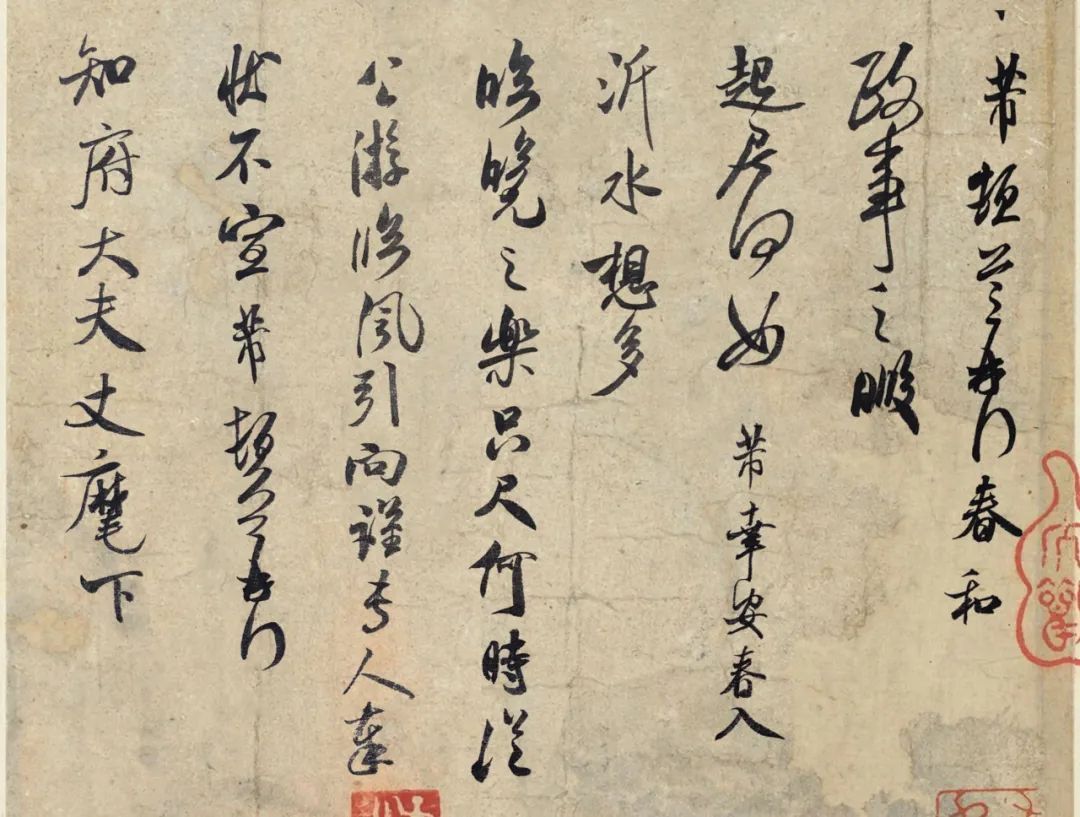 芾頓首再拜春和
政事之暇
起居何如芾幸安春入
沂水想多
臨晚之樂只尺何時從
公游臨風引向謹專人奉
狀不宣芾頓首再拜
知府大夫丈麾下